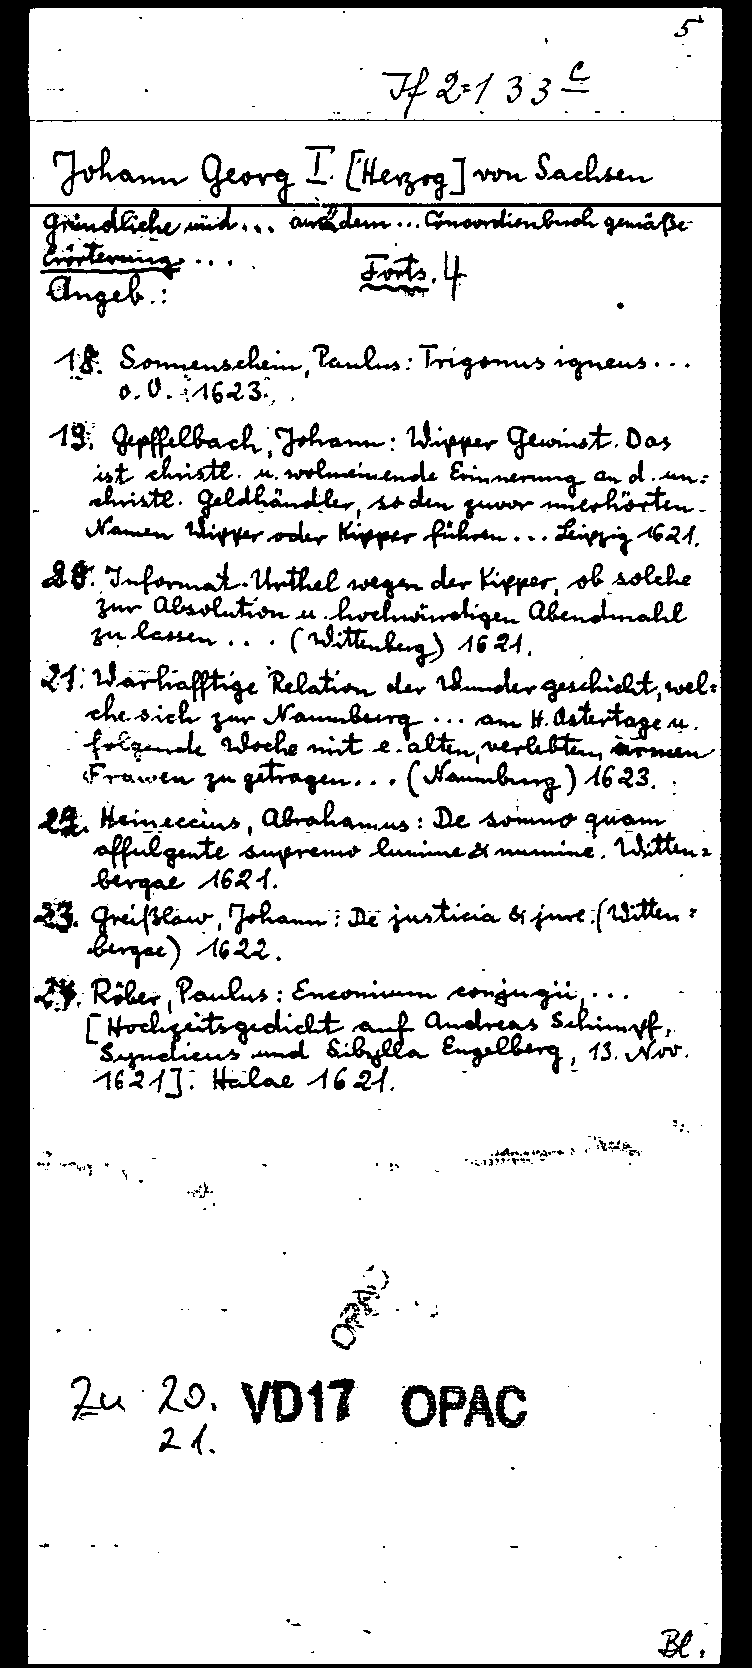 5
If 2=133 c
Johann Georg I. [Herzog] von Sachsen
Gründliche und... aus dem... Concordienbuch gemäße
Erörterung....
Forts. 4
Angeb.:
18. Sonnenschein, Paulus: Trigonus igneus...
o. O. 1623.
19. Gepffelbach, Johann: Wipper Gewinst. Das
ist christl. u. wolmeinende Erinnerung an d. un=
christl. Geldhändler, so den zuvor unerhörten
Namen Wipper oder Kipper führen... Leipzig 1621.
20. Informat-Urthel wegen der Kipper, ob solche
zur Absolution u. hochwürdigen Abendmahl
zu lassen.... (Wittenberg) 1621.
21. Warhafftige Relation der Wundergeschicht, wel=
che sich zur Naumburg... am H. Ostertage u.
folgende Woche mit e. alten, verlebten, armen
Frawen zu getragen... (Naumburg) 1623.
22. Heineccius, Abrahamus: De somno quam
affulgente supremo lumine & numine. Witten=
bergae 1621.
23. Greißlaw, Johann: De justicia & jure. (Witten=
bergae) 1622.
24. Röber, Paulus: Enconium conjugii,...
[Hochzeitsgedicht auf Andreas Schimpf,
Syndicus und Sibylla Engelberg, 13. Nov.
1621]. Halae 1621.
OPAC
Zu 20. VD17 OPAC
21.
Bl.